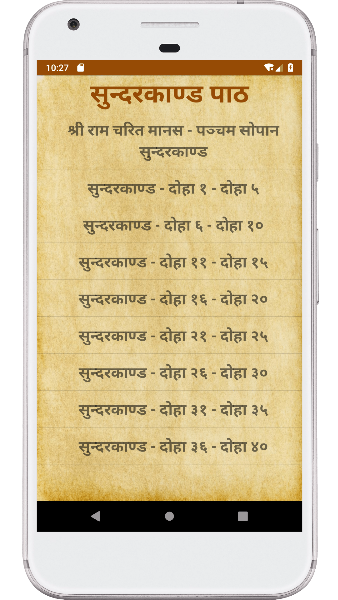 10:27
सुन्दरकाण्ड पाठ
श्री राम चरित मानस - पञ्चम सोपान
सुन्दरकाण्ड
सुन्दरकाण्ड - दोहा १ - दोहा ५
सुन्दरकाण्ड - दोहा ६ - दोहा १०
सुन्दरकाण्ड - दोहा ११ - दोहा १५
सुन्दरकाण्ड - दोहा १६ - दोहा २०
सुन्दरकाण्ड - दोहा २१ - दोहा २५
सुन्दरकाण्ड - दोहा २६ - दोहा ३०
सुन्दरकाण्ड - दोहा ३१ - दोहा ३५
सुन्दरकाण्ड - दोहा ३६ - दोहा ४०